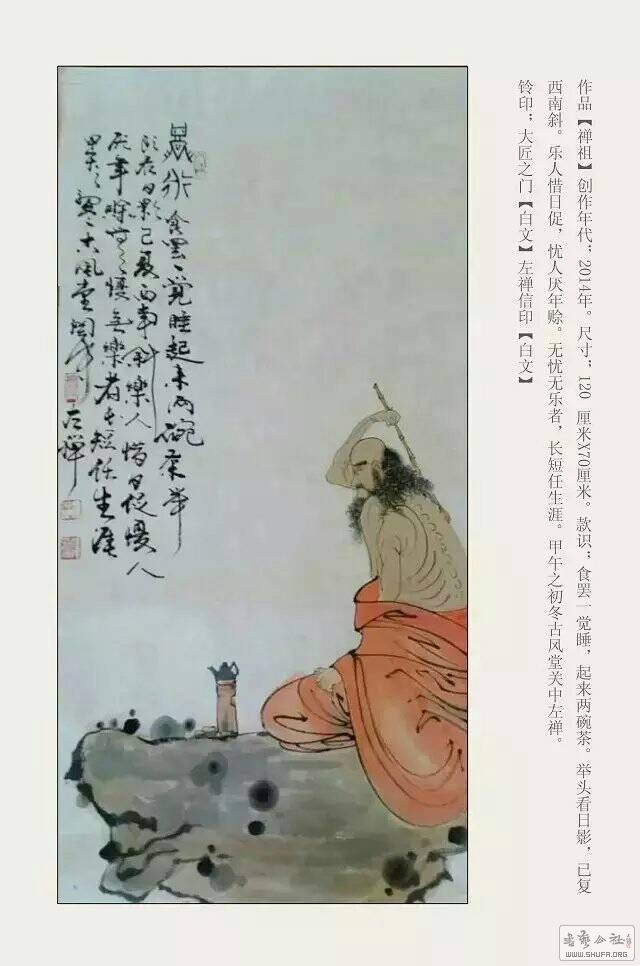 作品【禅祖】创作年代；2014年。尺寸；120 厘米X70厘米。款识；食罢一觉睡，起来两碗茶。举头看日影，已复
西南斜。乐人惜日促，忧人厌年赊。无忧无乐者，长短任生涯。甲午之初冬古风堂关中左禅。
铃印；大匠之门【白文】左禅信印【白文】
食罢一觉睡起来两碗茶举
日影已复西南斜樂人惜日促憂人
年赊憂無樂者長短任生涯
古風堂
左禅
WWW.SHUFA.ORG